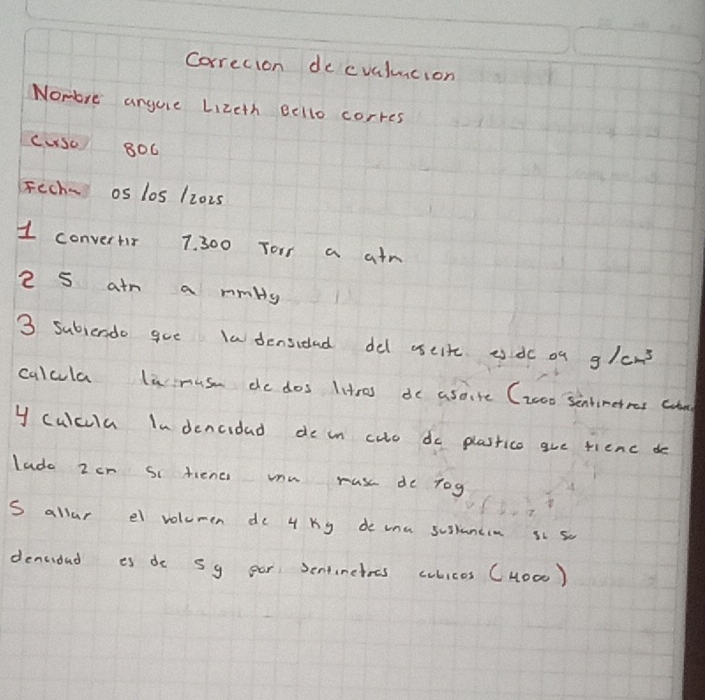 Correcion de evaluacion
Nombre angyie Lizeth Bello cortes
curso 806
Fecha 05/05/2025
1 convertir 7.300 Torr a atm
2 5 atm a mmHg
3 Subiendo que la densidad del aseite es de 09 g/cm³
calcula la masa de dos litros de aseite (2000 sentimetros
4 calcula la dencidad de un cubo de plastico que tiene de
lado 2 cm si tienes una masa de 10g
5 allar el volumen de 4 Kg de una sustancia si su
dencidad es de 5g por sentimetros cubicos (4000)